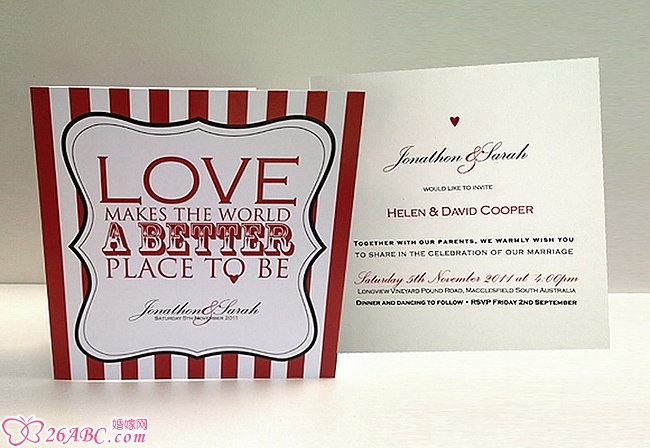 LOVE
MAKES THE WORLD
A BETTER
PLACE TO BE
Jonathon & Sarah
SATURDAY 5TH NOVEMBER 2011
Jonathon & Sarah
WOULD LIKE TO INVITE
HELEN & DAVID COOPER
TOGETHER WITH OUR PARENTS, WE WARMLY WISH YOU
TO SHARE IN THE CELEBRATION OF OUR MARRIAGE
Saturday 5th November 2011 at 4.00pm
LONGVIEW VINEYARD POUND ROAD, MACCLESFIELD SOUTH AUSTRALIA
DINNER AND DANCING TO FOLLOW • RSVP FRIDAY 2ND SEPTEMBER
婚嫁网
26ABC.com